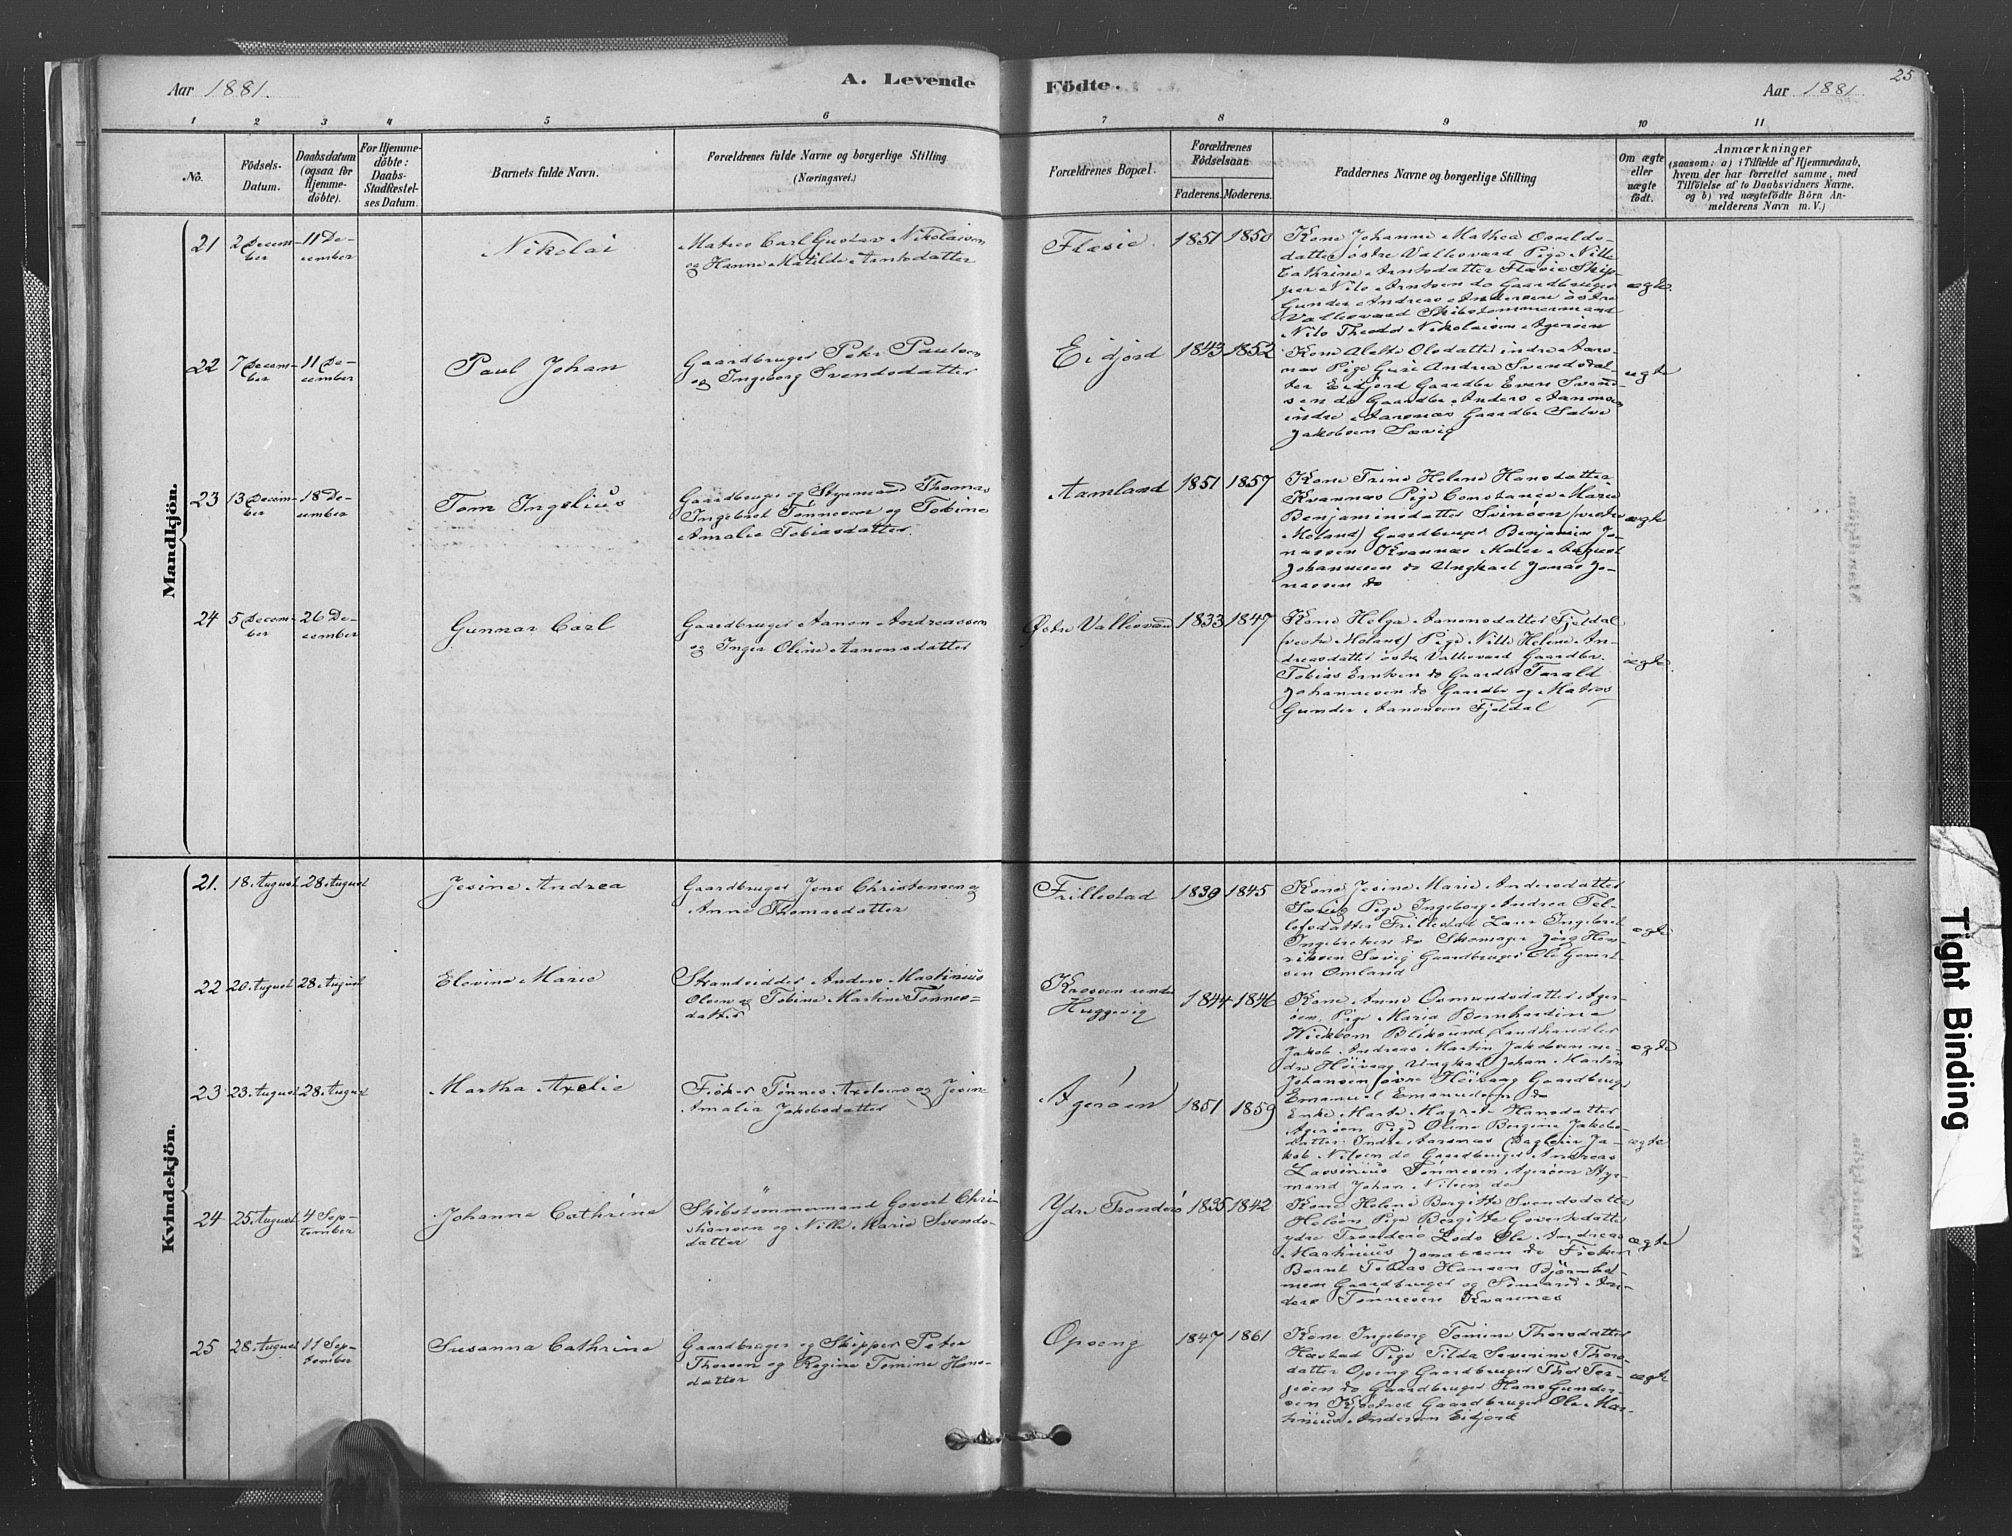 25
Aar 1881.
A. Levende
Födte.
Aar 1881
1 2 3 4 5 6 7 8 9 10 11
No.
Födsels-
Datum.
Daabsdatum
(ogsaa for
Hjemme-
döbte).
For Hjemme-
döbte:
Daabs-
Stadfæstel-
ses Datum.
Barnets fulde Navn.
Forældrenes fulde Navne og borgerlige Stilling
(Næringsvei.)
Forældrenes Bopæl.
Forældrenes
Födselsaar.
Faderens.
Moderens.
Faddernes Navne og borgerlige Stilling
Om ægte
eller
uægte
födt.
Anmærkninger
(saasom: a) i Tilfælde af Hjemmedaab,
hvem der har forrettet samme, med
Tilföielse af to Daabsvidners Navne.
og b) ved uægtefödte Börn An-
melderens Navn m. V.)
Mandkjön.
21
2 Decem-
ber
11 De-
cember
Nikolai
Matros Carl Gustav Nikolaisen
og Hanne Matilde Arntsdatter
Flæsie.
1851
1850
Kone Johanne Mathea Osulds-
datter østre Vallesværd Pige Nille
Cathrine Arntsdatter Flæsie Skip-
per Nils Arntsen do Gaardbruger
Gunder Andreas Andersen östre
Vallesværd Skibstömmermand
Nils Theodor Nikolaisen Ageröen
ægte
22
7 Decem-
ber
11 De-
cember
Paul Johan
Gaardbruger Peder Paulsen
og Ingeborg Svendsdatter
Eidjord
1843
1852
Kone Alette Olsdatter indre Aars-
næs Pige Guri Andrea Svendsdat-
ter Eidjord Gaardbr Even Svend-
sen do Gaardbr Anders Aanonsen
indre Aarsnæs Gaardbr Salve
Jakobsen Sævig
ægte
23
13 Decem-
ber
18 De-
cember
Tom Ingelius
Gaardbruger og Styrmand Thomas
Ingebret Tønnesen og Tobine
Amalie Tobiasdatter.
Aamland
1851
1857
Kone Trine Helene Hansdatter
Kvannes Pige Constance Marie
Benjaminsdatter Svinöen (vestre
Moland) Gaardbruger Benjamin Jo-
nassen Kvannes Maler August
Johannesen do Ungkarl Jonas Jo-
nassen do
ægte
24
5 Decem-
ber
26 De-
cember
Gunnar Carl
Gaardbruger Aanon Andreassen
og Inger Oline Aanonsdatter
Østre Vallesværd
1833
1847
Kone Helga Aanonsdatter Fjeldal
(vestre Moland) Pige Nille Helene An-
dreasdatter östre Vallesværd Gaardbr.
Tobias Eriksen do Gaardbr Tarald
Johannesen do Gaardbr og Matros
Gunder Aanonsen Fjeldal
ægte
Kvindekjön.
21.
18 August
28 August
Jesine Andrea
Gaardbruger Jens Christensen og
Anne Thomasdatter
Frillestad
1839
1845
Kone Jesine Marie Andersdatter
Sævig Pige Ingeborg Andrea Tel-
lefsdatter Frillestad Lærer Ingebret
Ingebretsen do Skomager Jörg Hen-
riksen Sævig Gaardbruger Ole Govert-
sen Omland
ægte
22
20 August
28 August
Elevine Marie
Strandsidder Anders Martinius
Olsen og Tobine Martine Tønnes-
datter
Kroseen under
Huggevig
1844
1846
Kone Anne Osmundsdatter Ager-
öen, Pige Maria Bernhardine
Wickbom Bliksund Landhandler
Jakob Andreas Martin Jakobsen ne-
dre Höivaag Ungkarl Johan Martin
Johansen övre Höivaag Gaardbrug
Emanuel Emanuelsen do
ægte
23
23 August
28 August
Martha Axelie
Fisker Tønnes Axelsen og Jesine
Amalia Jakobsdatter
Ageröen
1851
1859
Enke Marte Magrete Hansdatter
Ageröen Pige Oline Bergine Jakobs-
datter Indre Aarsnæs Dagleier Ja-
kob Nilsen do Gaardbruger Andreas
Lassinius Tønnesen Ageröen Styr-
mand Johan Nilsen do
ægte
24
25 August
4 Sep-
tember
Johanne Cathrine
Skibstömmermand Govert Chri-
stiansen og Nille Marie Svends-
datter
Ydre Trøndero
1835
1842
Kone Helene Bergitte Svendsdatter
Helöen Pige Bergitte Govertsdatter
ydre Trøndero Lods Ole Andreas
Martinius Jonassen do Fisker
Bernt Tobias Hansen Björnhol-
men Gaardbruger og Sömand An-
ders Tønnesen Kvarenæs
ægte
25
28 August
11 Sep-
tember
Susanna Cathrine
Gaardbruger og Skipper Peter
Thorsen og Regine Tomine Hans-
datter
Opoeng
1847
1861
Kone Ingeborg Tomine Thorsdatter
Hæstad Pige Tilda Severine Thors-
datter Openg Gaardbruger Thor Ter-
jesen do Gaardbruger Hans Gunder-
sen Kjöstred Gaardbruger Ole Mar-
tinius Andersen Eidjord
ægte
Tight Binding